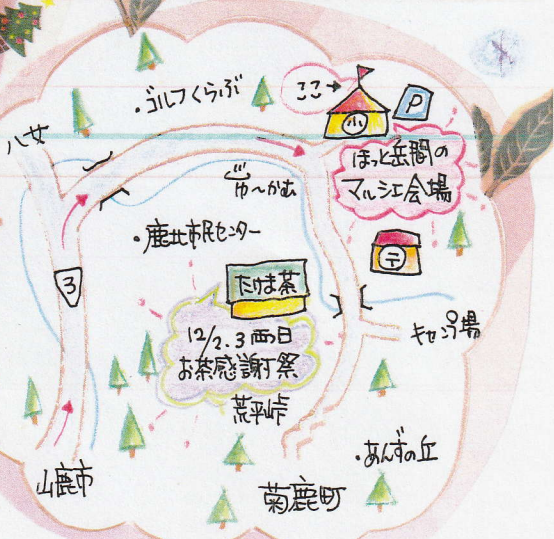 ・ゴルフくらぶ
ここ→
P
小
八女
ほっと岳間の
マルシェ会場
ゆ〜かむ
・鹿北市民センター
〒
3
たけま茶
12/2.3両日
お茶感謝祭
キャンプ場
荒平峠
・あんずの丘
山鹿市
菊鹿町